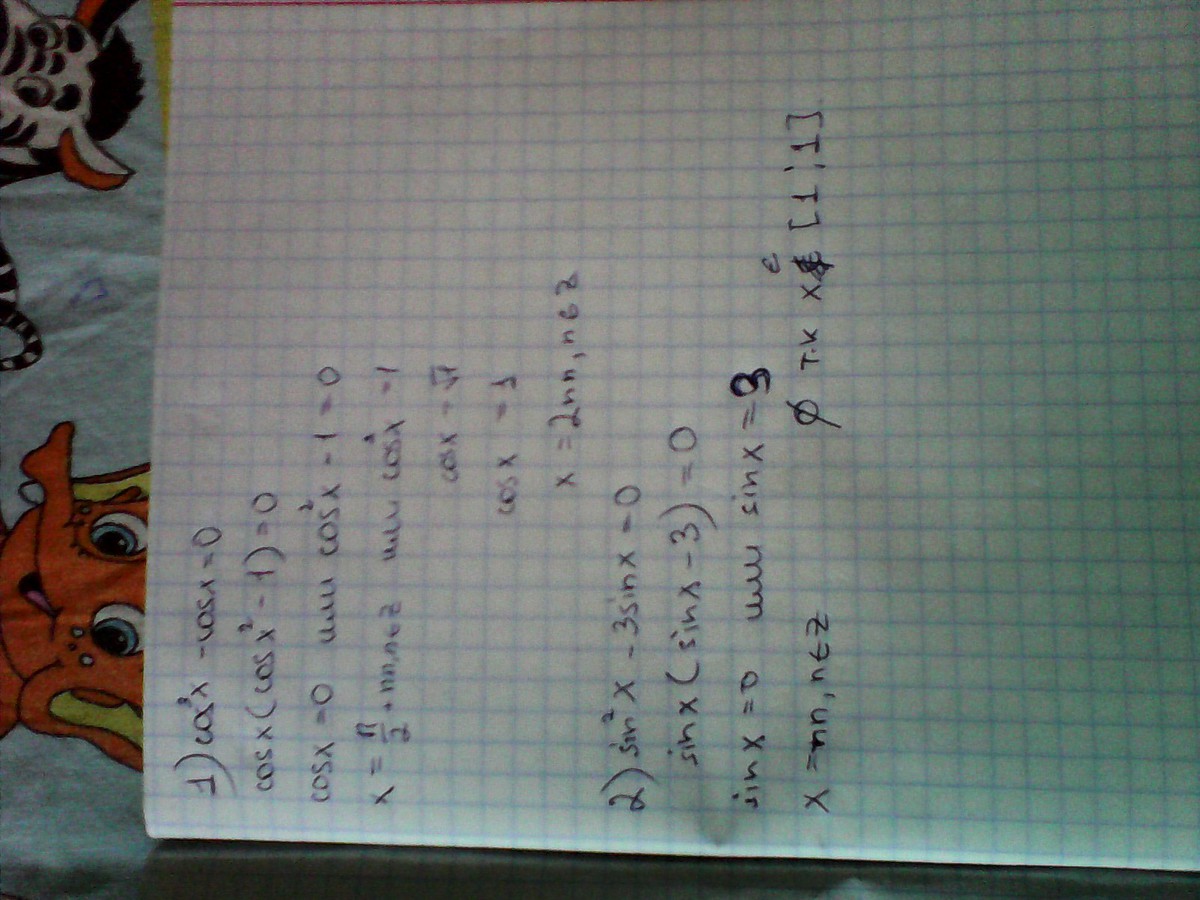 1) cos³x - cosx = 0
cosx(cosx² - 1) = 0
cosx = 0 или cos²x - 1 = 0
x = π/2 + πn, n∈z или cos²x = 1
cosx = √1
cosx = 1
x = 2πn, n∈z
2) sin²x - 3sinx = 0
sinx(sinx - 3) = 0
sinx = 0 или sinx = 3
x = πn, n∈z ∅ т.к x∈[1;1]